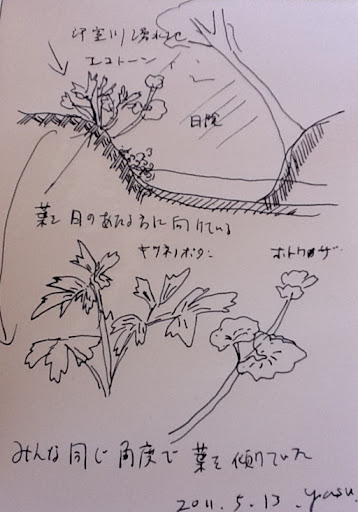 エコトーン
日陰
葉を日のあたる方に向けている
キツネノボタン
ホトケノザ
みんな同じ角度で葉を傾けていた
2011.5.13. yasu